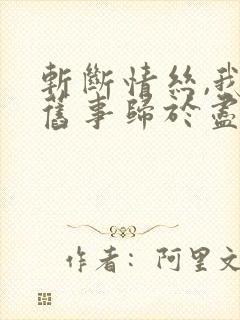 斬斷情絲,我
舊事歸於盡
作者：阿里文